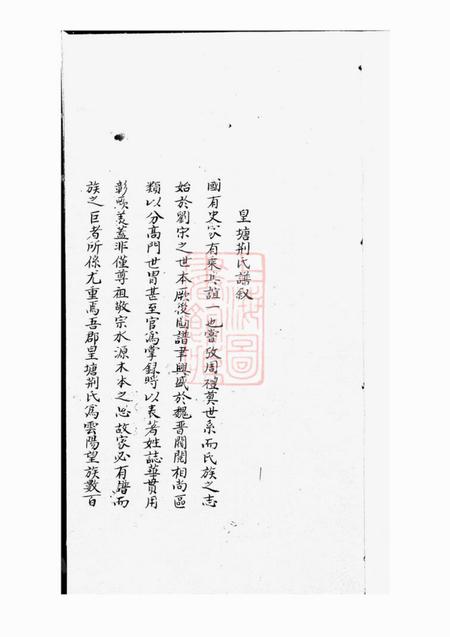 皇塘荆氏譜敘
國有史家有乘其誼一也嘗攷周禮奠世系而氏族之志
始於劉宗之世本厥後圖譜聿興盛於魏晋閥閱相尚區
類以分高門世胄甚至官為掌録時以表著姓誌華貫用
彰厥美蓋非僅尊祖敬宗水源木本之思故家必有譜而
族之巨者所係尤重焉吾郡皇塘荆氏為雲陽望族數百